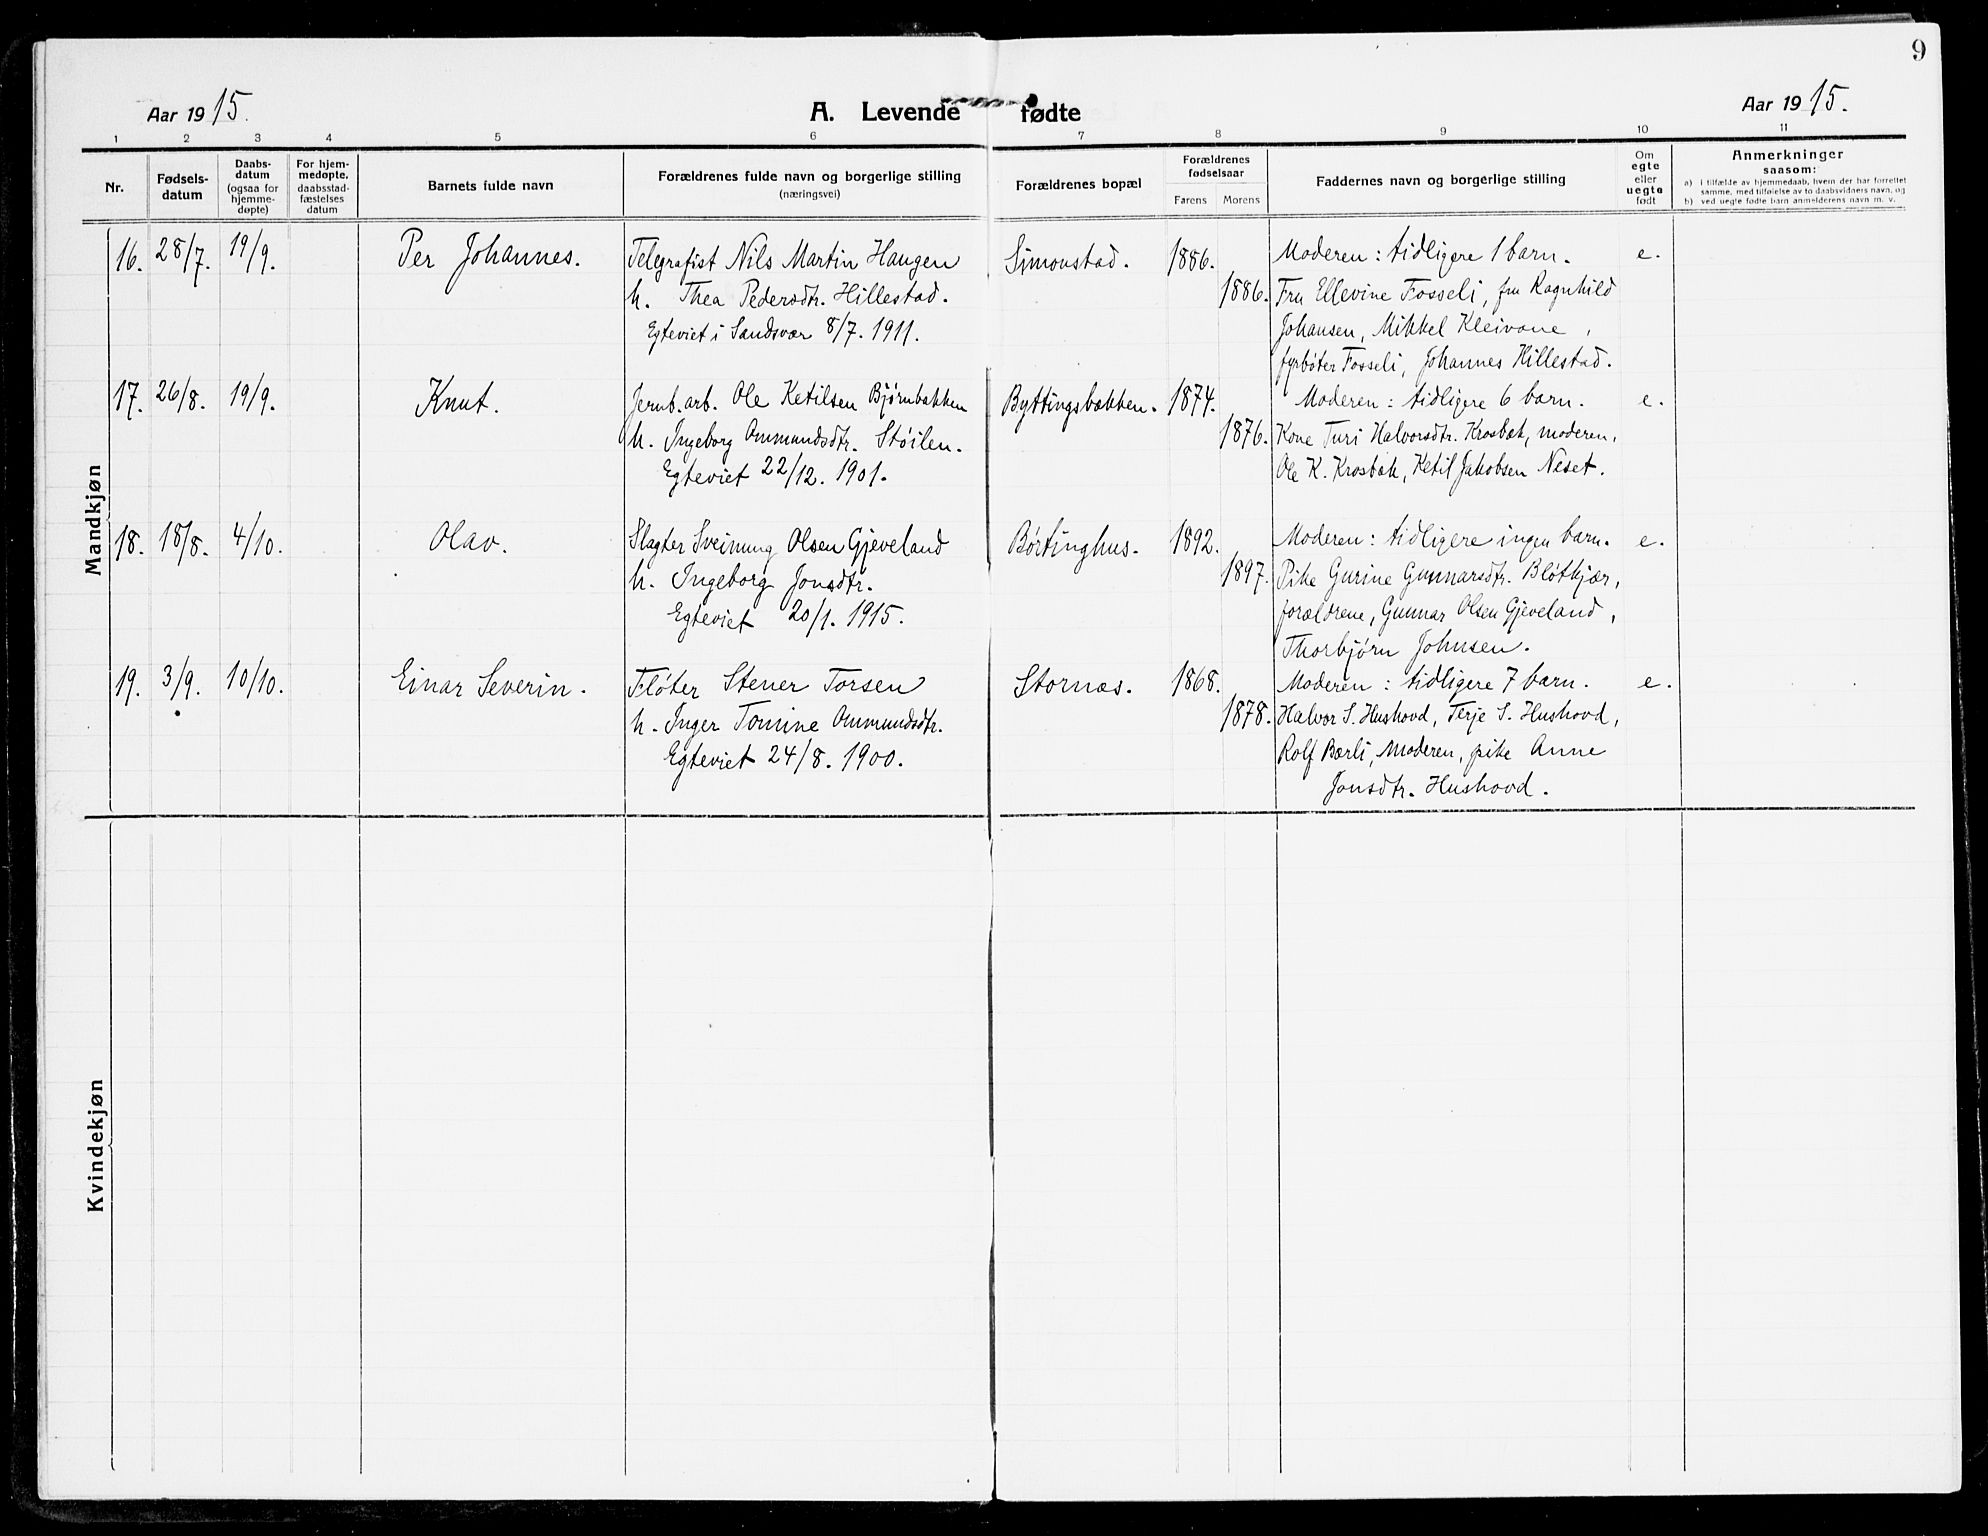 9
Aar 1915.
A. Levende fødte
Aar 1915.
1 2 3 4 5 6 7 8 9 10 11
Nr.
Fødsels-
datum
Daabs-
datum
(ogsaa for
hjemme-
døpte)
For hjem-
medøpte,
daabsstad-
fæstelses
datum
Barnets fulde navn
Forældrenes fulde navn og borgerlige stilling
(næringsvei)
Forældrenes bopæl
Forældrenes
fødselsaar
Farens Morens
Faddernes navn og borgerlige stilling
Om
egte
eller
uegte
født
Anmerkninger
saasom:
a) I tilfælde av hjemmedaab, hvem der har forrettet
samme, med tilføielse av to daabsvidners navn, og
b) ved uegte fødte barn anmelderens navn m. v.
Mandkjøn
16. 28/7. 19/9. Per Johannes. Telegrafist Nils Martin Haugen Simonstad. 1886. Moderen: tidligere 1 barn. e.
h. Thea Pedersdtr. Hillestad. 1886. Fru Ellevine Fosseli, fru Ragnhild
Egteviet i Sandsvær 8/7. 1911. Johansen, Mikkel Kleivane,
fyrbøter Fosseli, Johannes Hillestad.
17. 26/8. 19/9. Knut. Jernb.arb. Ole Ketilsen Bjørnbakken Byttingsbakken. 1874. Moderen: tidligere 6 barn. e.
h. Ingeborg Ommundsdtr. Støilen. 1876. Kone Turi Halvorsdtr. Krosbæk, moderen,
Egteviet 22/12. 1901. Ole K. Krosbæk, Ketil Jakobsen Neset.
18. 18/8. 4/10. Olav. Slagter Sveinung Olsen Gjeveland Børtinghus. 1892. Moderen: tidligere ingen barn. e.
h. Ingeborg Jonsdtr. 1897. Pike Gurine Gunnarsdtr. Bløtkjær,
Egteviet 20/1. 1915. forældrene, Gunnar Olsen Gjeveland,
Thorbjørn Johnsen.
19. 3/9. 10/10. Einar Severin. Fløter Stener Torsen Stornæs. 1868. Moderen: tidligere 7 barn. e.
h. Inger Tomine Ommundsdtr. 1878. Halvor S. Hushovd, Terje S. Hushovd,
Egteviet 24/8. 1900. Rolf Bærli, Moderen, pike Anne
Jonsdtr. Hushovd.
Kvindekjøn